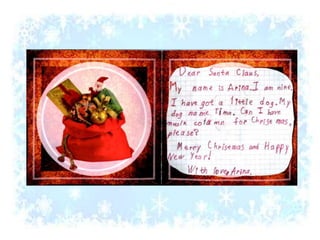 Dear Santa Claus,
My name is Arina. I am nine.
I have got a little dog. My
dog name Tima. Can I have
musik column for Christmas,
please?
Merry Christmas and Happy
New Year!
With love, Arina.